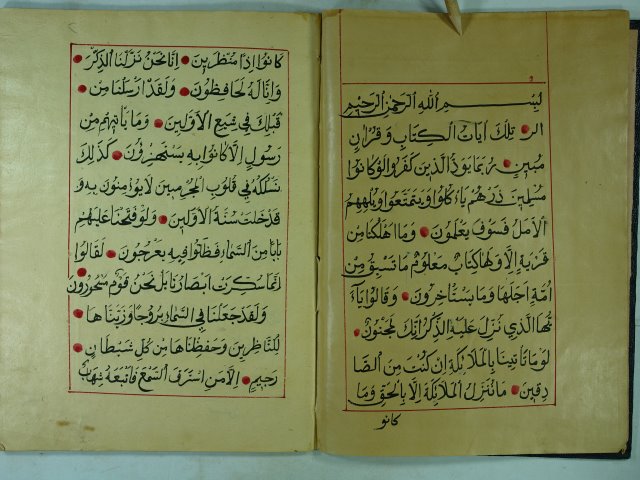 بسم الله الرحمن الرحيم
الر تلك ايات الكتاب وقران
مبين ربما يود الذين كفروا لو كانوا
مسلمين ذرهم ياكلوا ويتمتعوا ويلههم
الامل فسوف يعلمون وما اهلكنا من
قرية الا ولها كتاب معلوم ما تسبق من
امة اجلها وما يستاخرون وقالوا يآء
يها الذي نزل عليه الذكر انك لمجنون
لوما تاتينا بالملائكة ان كنت من الصا
دقين ما ننزل الملائكة الا بالحق وما
كانو
كانوا اذا منظرين انا نحن نزلنا الذكر
وانا له لحافظون ولقد ارسلنا من
قبلك في شيع الاولين وما ياتيهم من
رسول الا كانوا به يستهزؤن كذلك
نسلكه في قلوب المجرمين لا يؤمنون به و
قد خلت سنة الاولين ولو فتحنا عليهم
بابا من السماء فظلوا فيه يعرجون لقالوا
انما سكرت ابصارنا بل نحن قوم مسحورون
ولقد جعلنا في السماء بروجا وزيناها
للناظرين وحفظناها من كل شيطان
رجيم الا من استرق السمع فاتبعه شهاب